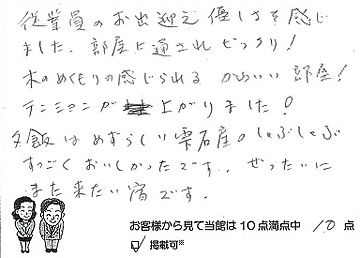 従業員のお出迎え優しさを感じ
ました。部屋に通されビックリ!
木のぬくもりの感じられるかわいい部屋!
テンションが上がりました!
夕飯はめずらしい雫石産のしゃぶしゃぶ
すっごくおいしかったです。ぜったいに
また来たい宿です。
お客様から見て当館は10点満点中 10 点
☑ 掲載可※